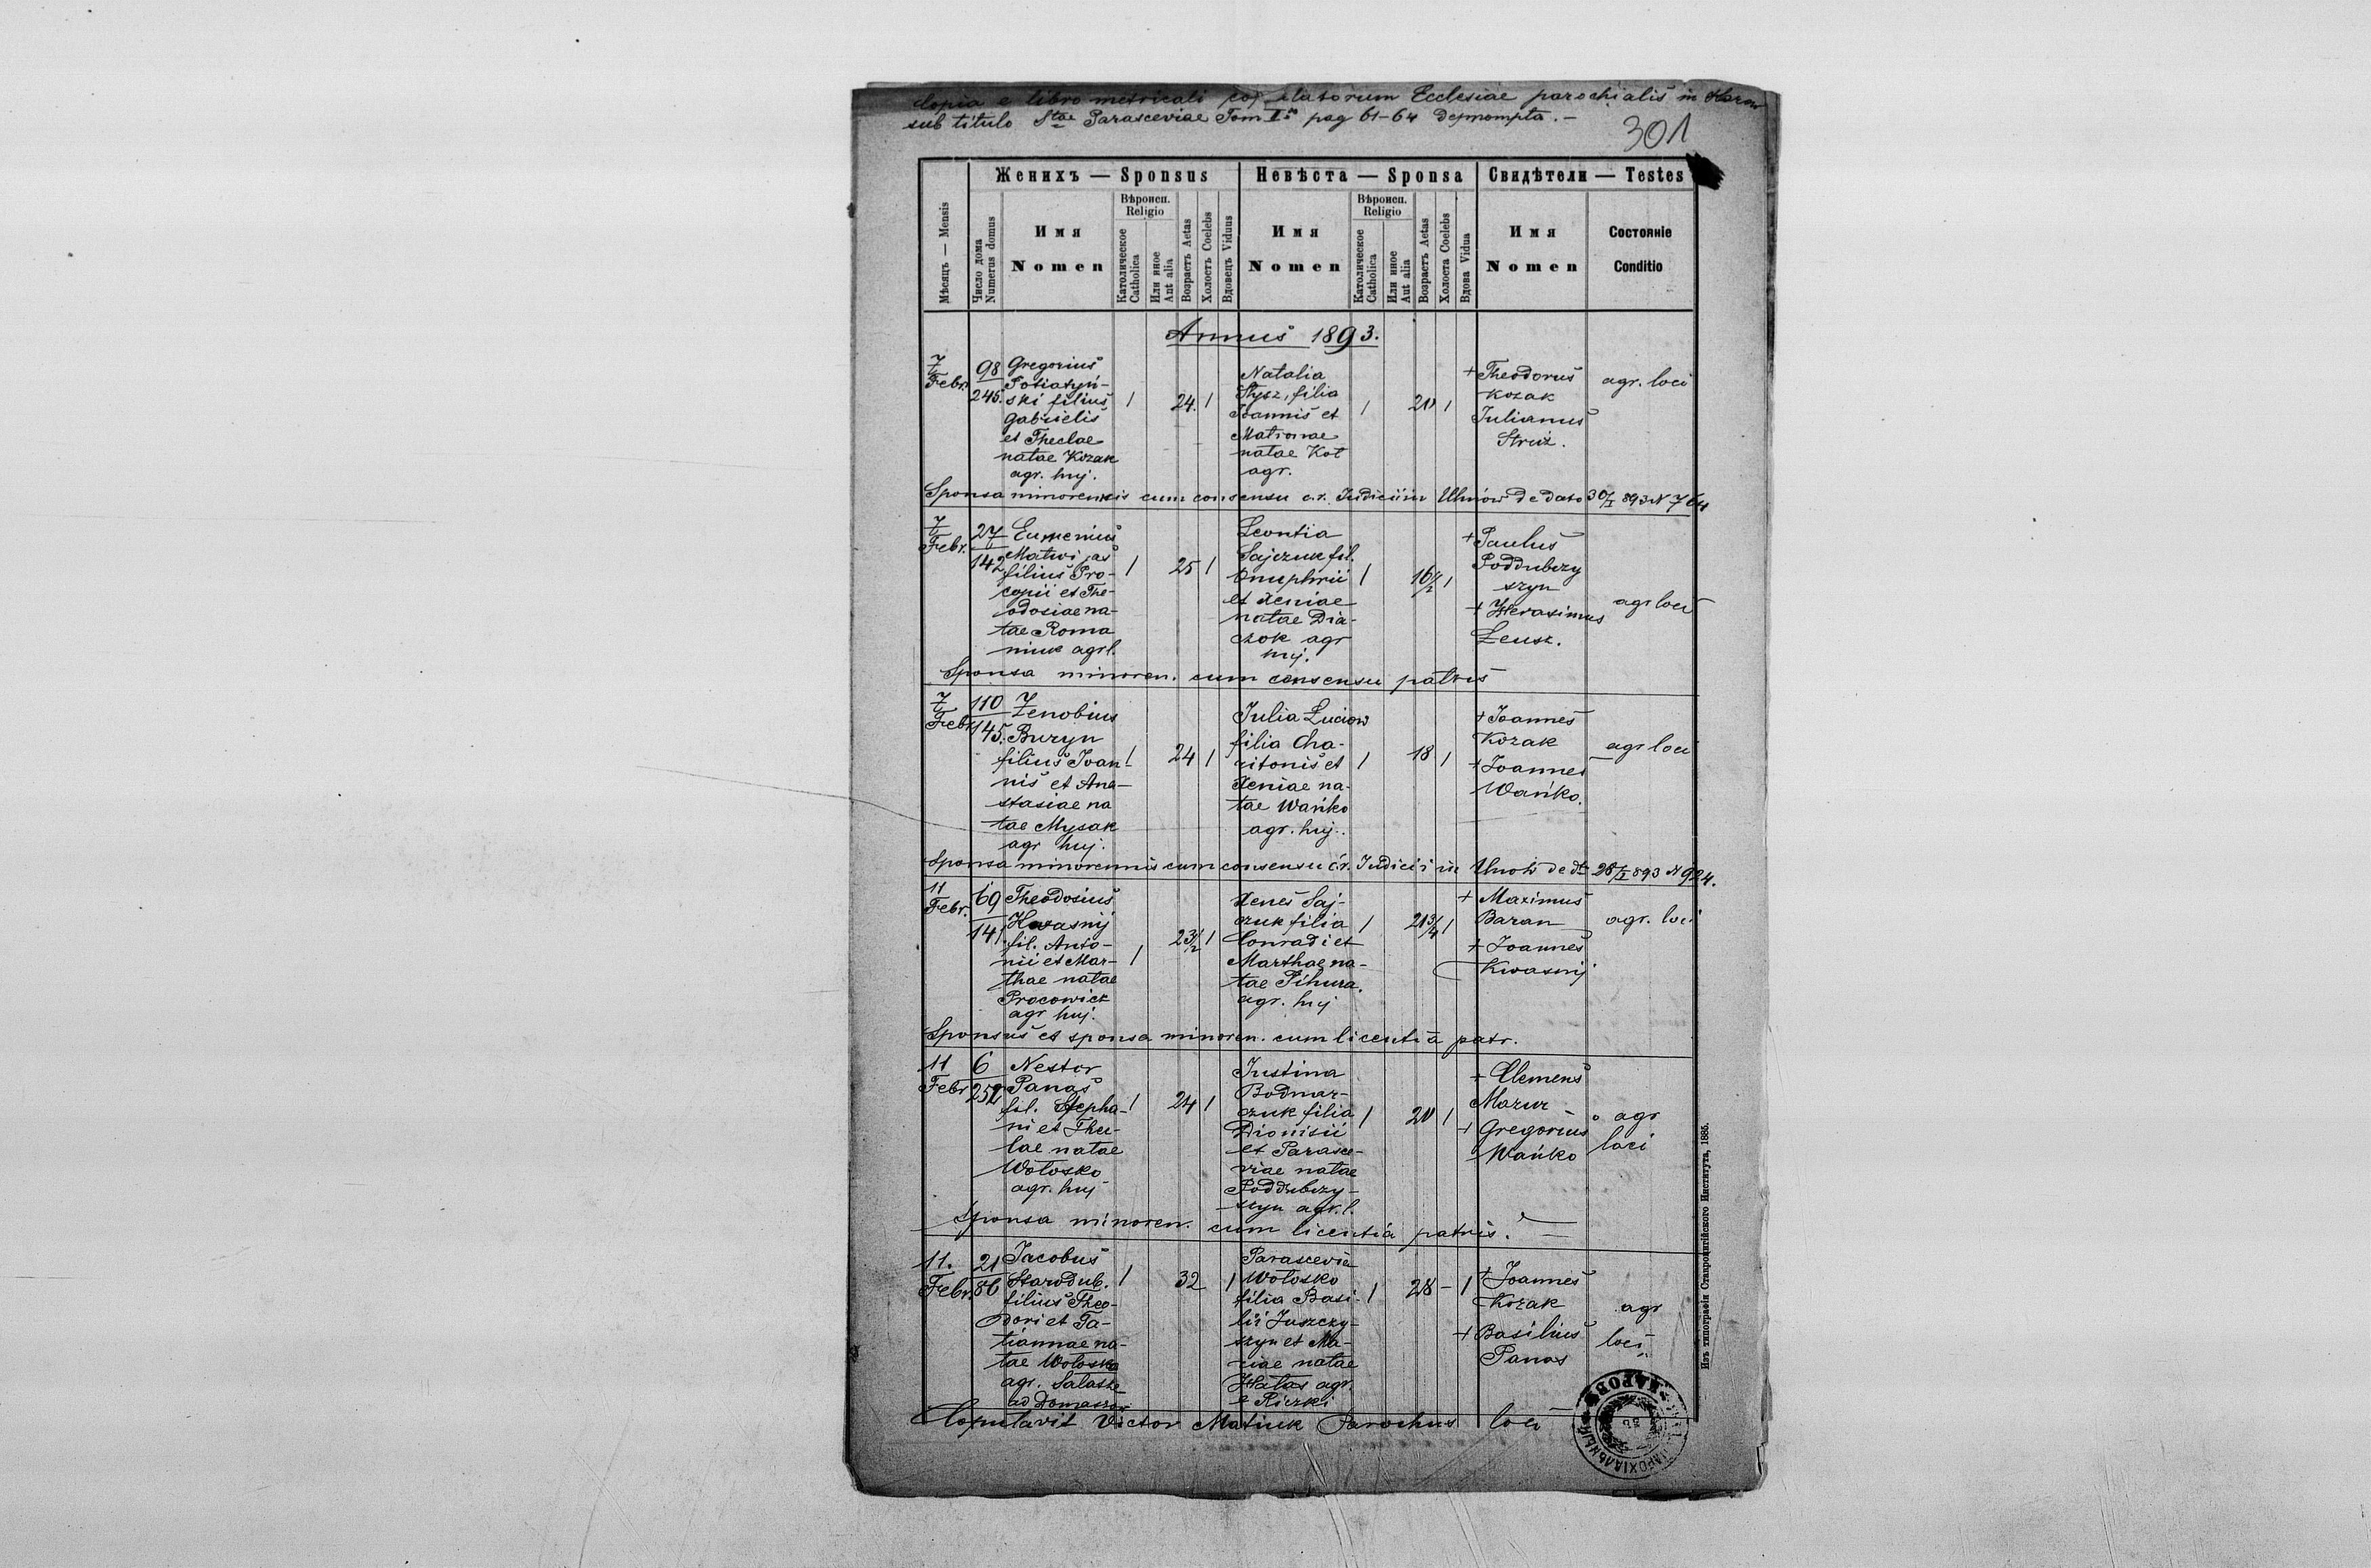 Copia e libro metricali copulatorum Ecclesiae parochialis in
sub titulo Stae Parasceviae Tom I pag 61-64 depromta. –
301
Женихъ — Sponsus
Невѣста — Sponsa
Свидѣтели — Testes
Мѣсяцъ — Mensis
Число дома
Numerus domus
Имя
Nomen
Вѣроисп.
Religio
Католическое
Catholica
Или иное
Aut alia
Возрастъ Aetas
Холостъ Coelebs
Вдовецъ Viduus
Имя
Nomen
Вѣроисп.
Religio
Католическое
Catholica
Или иное
Aut alia
Возрастъ Aetas
Холоста Coelebs
Вдова Vidua
Имя
Nomen
Состояніе
Conditio
Annus 1893.
7
Febr.
98
245.
Gregorius
ski filius
Gabrielis
et Theclae
natae Kozak
agr. huj.
1 24. 1
Natalia
filia
Joannis et
Matronae
natae Kot
agr.
1 20 1
+ Theodorus
Kozak
Julianus
agr. loci
Sponsa minorensis cum consensu c.r. Judicii in Uhnów de dato 30/I 893 N 764
7
Febr.
27
142
Eumenius
Matwijas
filius Pro-
copii et The-
odosiae na-
tae Roma
niuk agr l.
1 25 1
Leontia
Sajczuk fil.
Onuphrii
et Xeniae
natae Dia-
czok agr
huj.
1 16 1/2 1
+ Paulus
Poddubczy
szyn
+ Herasimus
Leusz.
agr loci
Sponsa minoren. cum consensu patris
7
Febr.
110
145.
Zenobius
Buryn
filius Joan-
nis et Ana-
stasiae na
tae Mysak
agr huj.
1 24 1
Julia Luciow
filia Cha-
ritonis et
Xeniae na-
tae Wańko
agr. huj.
1 18 1
+ Joannes
Kozak
+ Joannes
Wańko.
agr loci
Sponsa minorennis cum consensu c.r. Judicii in Uhnów de dt 28/I 893 N 924.
11
Febr.
69
141
Theodosius
Kwasnij
fil. Anto-
nii et Mar-
thae natae
Procowicz
agr huj.
1 23 1/2 1
Xenes Saj-
czuk filia
Conradi et
Marthae na-
tae Pihura.
agr. huj
1 20 3/4 1
+ Maximus
Baran
+ Joannes
Kwasnij
agr. loci
Sponsus et sponsa minoren. cum licentiâ patr.
11
Febr
6
252
Nestor
Panas
fil. Stepha-
ni et Thec-
lae natae
Wołosko
agr. huj
1 24 1
Justina
Bodnar-
czuk filia
Dionisii
et Parasce-
viae natae
Poddubczy-
szyn agr. l.
1 20 1
+ Clemens
Mazur
+ Gregorius
Wańko
agr
loci
Sponsa minoren. cum licentiâ patris.
11.
Febr.
21
86
Jacobus
Starodub.
filius Theo-
dori et Ta-
tiannae na-
tae Wołosko
agr. Salasze
ad Domaszow
1 32 1
Parascevia
Wołosko
filia Basi-
lii Juszczy-
szyn et Ma-
riae natae
Hałas agr.
e Riczki
1 28 – 1
+ Joannes
Kozak
+ Basilius
Panas
agr
loci
Copulavit Victor Matiuk Parochus loci
Изъ типографіи Ставропигійского Института, 1885.